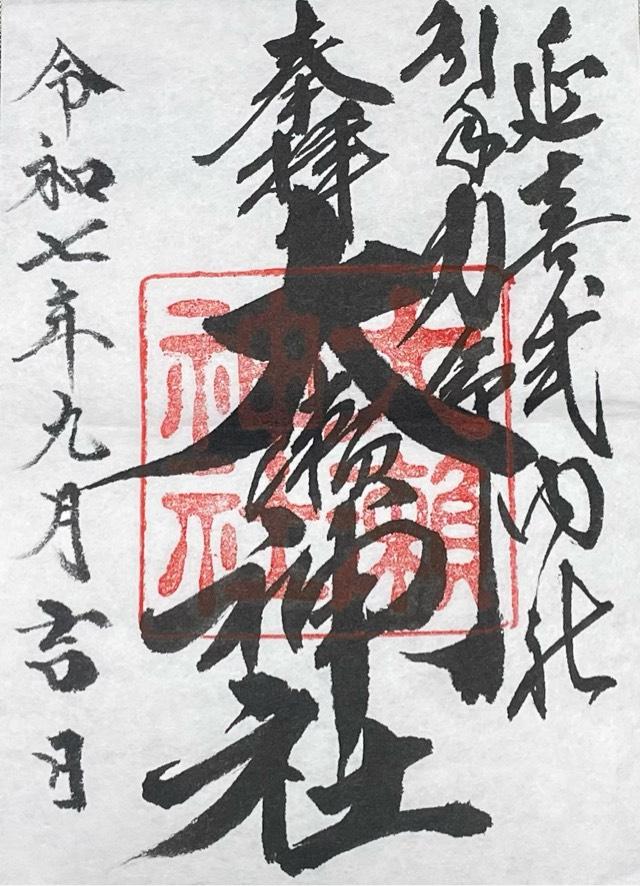 延喜式内社
引手力命
奉拝
大瀬神社
大瀬
神社
令和七年九月吉日